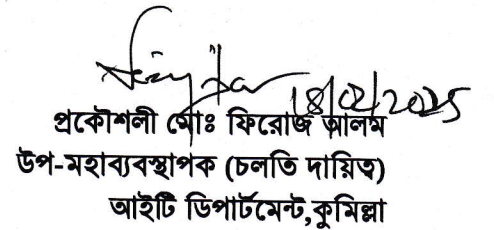 18/02/2025
প্রকৌশলী মোঃ ফিরোজ আলম
উপ-মহাব্যবস্থাপক (চলতি দায়িত্ব)
আইটি ডিপার্টমেন্ট,কুমিল্লা